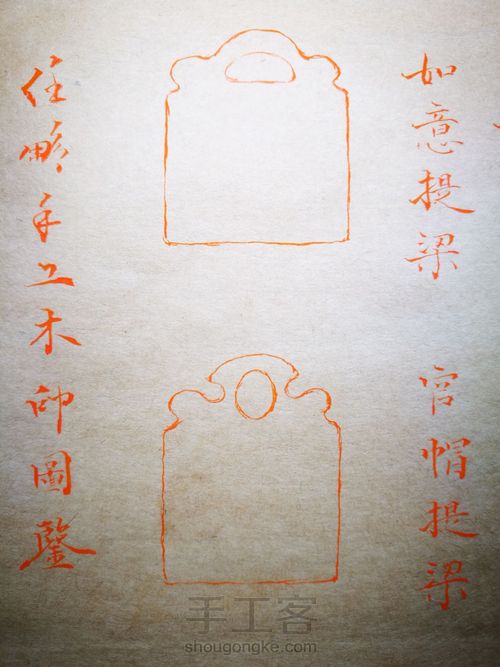 如意提梁
官帽提梁
任畛手工木印圖鑒
手工客
shougongke.com